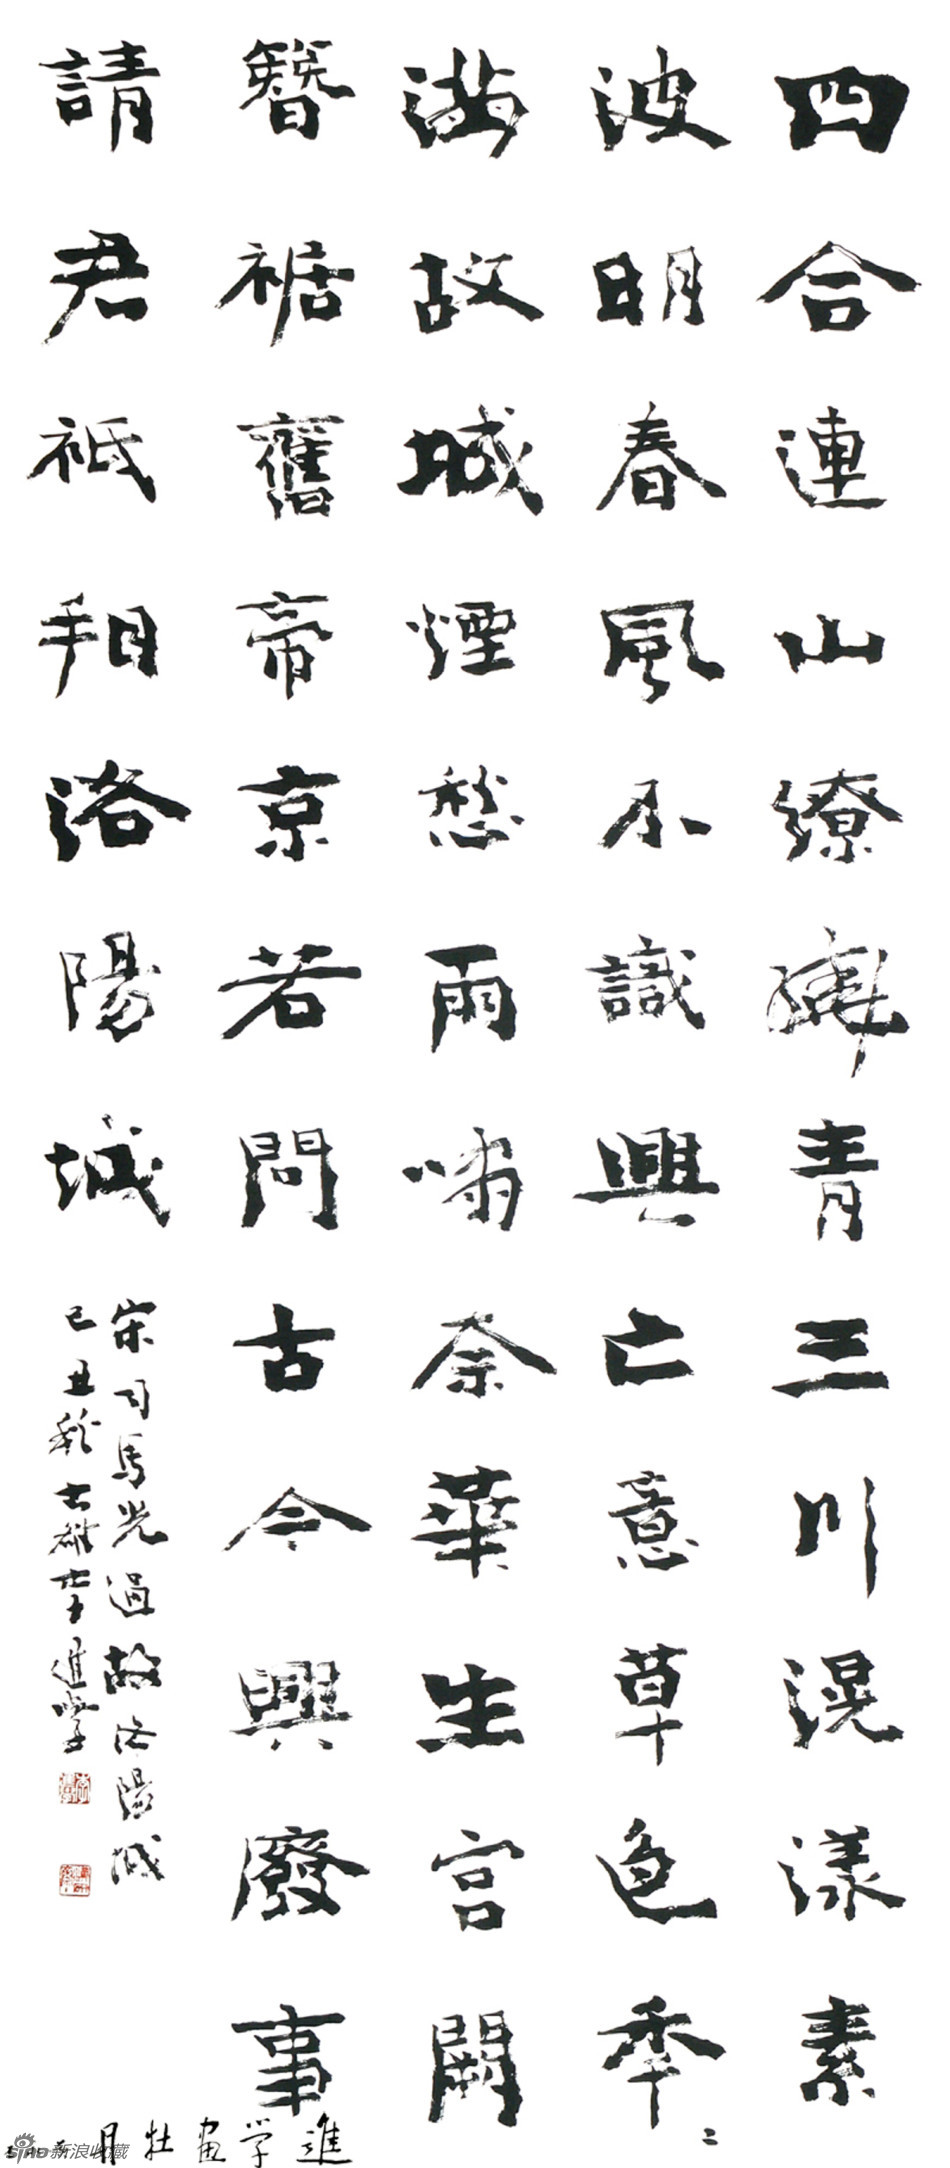 四合連山繚繞青三川滉漾素
波明春風不識興亡意草色秊〻
滿故城煙愁雨嘯奈華生宮闕
簪裾舊帝京若問古今興廢事
請君祗看洛陽城
宋司馬光過故洛陽城
己丑秋古雍李進學
進學畫牡丹
新浪收藏